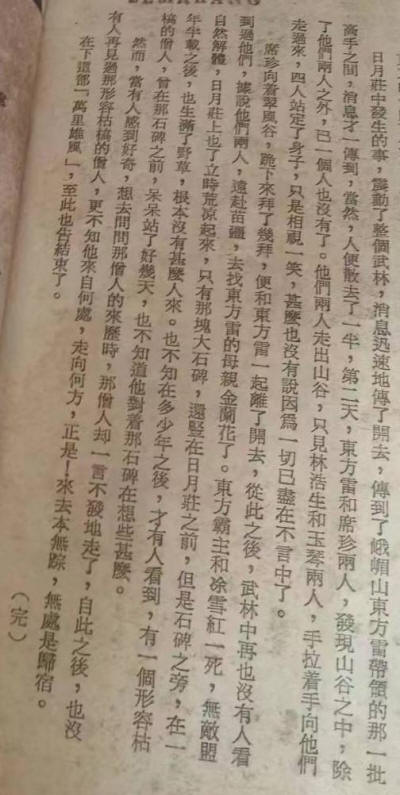 SEMARANG
日月莊中發生的事，震動了整個武林，消息迅速地傳了開去，傳到了峨嵋山東方雷帶領的那一批
高手之間，消息才一傳到，當然，人便散去了一半，第二天，東方雷和席珍兩人，發現山谷之中，除
了他們兩人之外，已一個人也沒有了。他們兩人走出山谷，只見林浩生和玉琴兩人，手拉着手向他們
走過來，四人站定了身子，只是相視一笑，甚麼也沒有說因爲一切已盡在不言中了。
席珍向着翠風谷，跪下來拜了幾拜，便和東方雷一起離了開去，從此之後，武林中再也沒有人看
到過他們，據說他們兩人，遠赴苗疆，去找東方雷的母親金蘭花了。東方霸主和凃雪紅一死，無敵盟
自然解體，日月莊上也了立時荒凉起來，只有那塊大石碑，還豎在日月莊之前，但是石碑之旁，在一
年半載之後，也生滿了野草，根本沒有甚麼人來。也不知在多少年之後，才有人看到，有一個形容枯
槁的僧人，曾在那石碑之前，呆呆站了好幾天，也不知道他對着那石碑在想些甚麼。
然而，當有人感到好奇，想去問問那僧人的來歷時，那僧人却一言不發地走了，自此之後，也沒
有人再見過那形容枯槁的僧人，更不知他來自何處，走向何方，正是！來去本無踪，無處是歸宿。
在下這部「萬里雄風」，至此也告結束了。
（完）